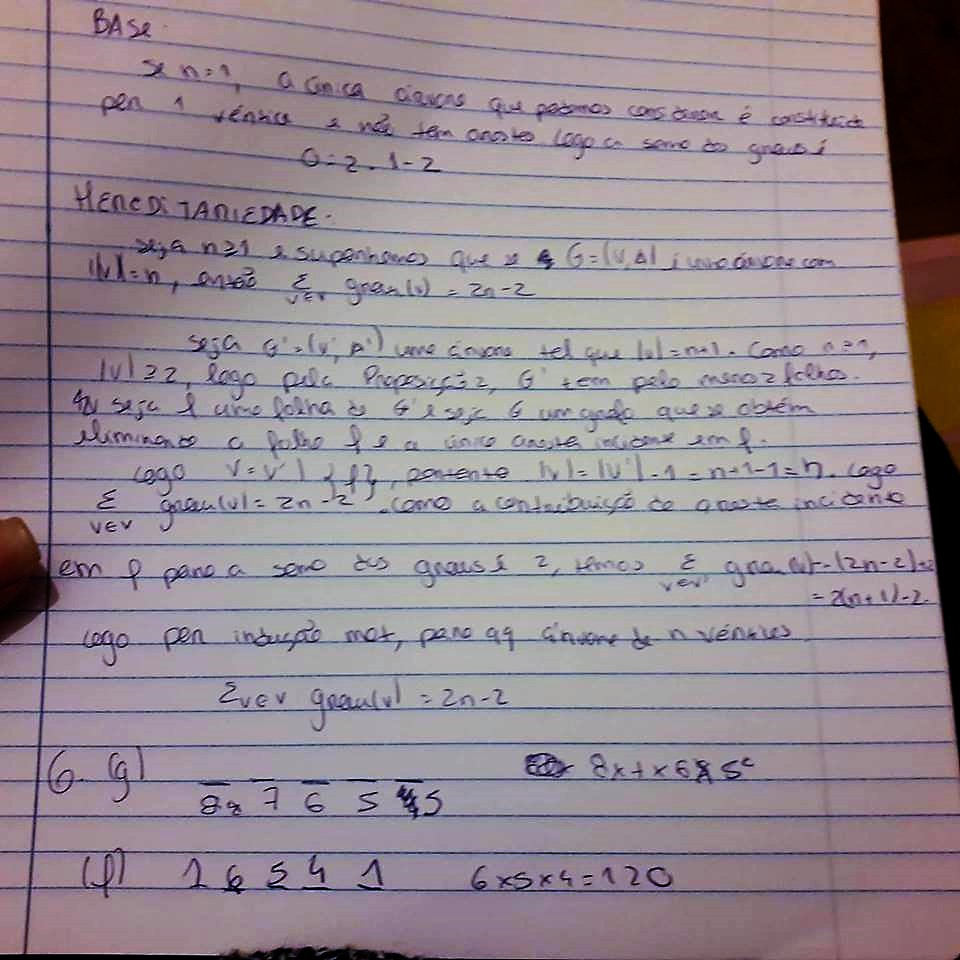 BASE.
se n=1, a única árvore que podemos construir é constituída
por 1 vértice e não tem arestas logo a soma dos graus é
0=2.1-2
HEREDITARIEDADE.
seja n≥1 e suponhamos que se G=(V,A) é uma árvore com
|V|=n, então Σ v∈V grau(v) = 2n-2
seja G'=(V',A') uma árvore tal que |V|=n+1. Como n≥1,
|V|≥2, logo pela Proposição 2, G' tem pelo menos 2 folhas.
seja f uma folha de G' e seja G um grafo que se obtém
eliminando a folha f e a única aresta incidente em f.
Logo V=V'\{f}, portanto |V|=|V'|-1=n+1-1=n. Logo
Σ v∈V grau(v)=2n-2. como a contribuição da aresta incidente
em f para a soma dos graus é 2, temos Σ v∈V' grau(v)=(2n-2)+2
=2(n+1)-2.
Logo por indução mat, para qq árvore de n vértices
Σv∈V grau(v) = 2n-2
6. (g) 8 7 6 5 5 8x7x6x5²
(f) 1 6 5 4 1 6x5x4=120